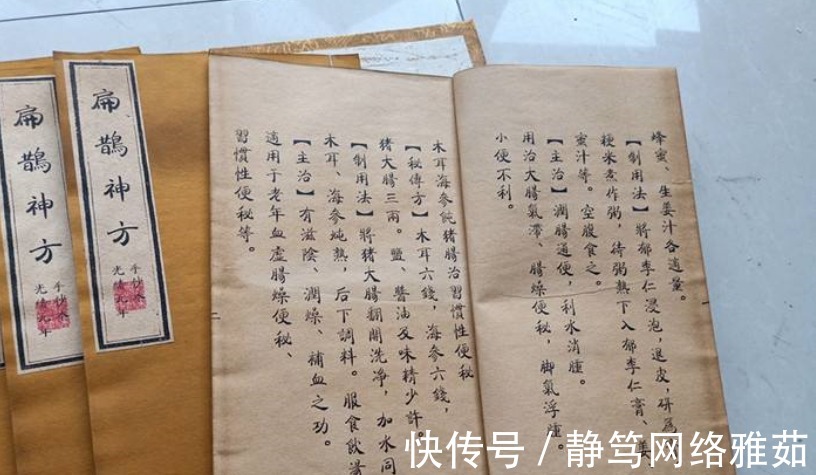 蜂蜜、生姜汁各適量。
【制用法】將郁李仁浸泡,退皮,研爲
粳米煮作粥,待粥熟下入郁李仁膏、姜
蜜汁等。空腹食之。
【主治】潤腸通便,利水消腫。
用治大腸氣滯、腸燥便秘,脚氣浮腫。
小便不利。
木耳海參炖猪腸治習慣性便秘
【秘傳方】木耳六錢,海參六錢,
猪大腸三兩。鹽、醬油及味精少許。
【制用法】將猪大腸翻開洗净,加水同
木耳、海參炖熟,后下調料。服食飲湯
【主治】有滋陰、潤燥、補血之功。
適用于老年血虛腸燥便秘、
習慣性便秘等。
二
扁鵲神方
手抄本
光緒元年
扁鵲神方
手抄本
光緒元年
快传号/静笃网络雅茹